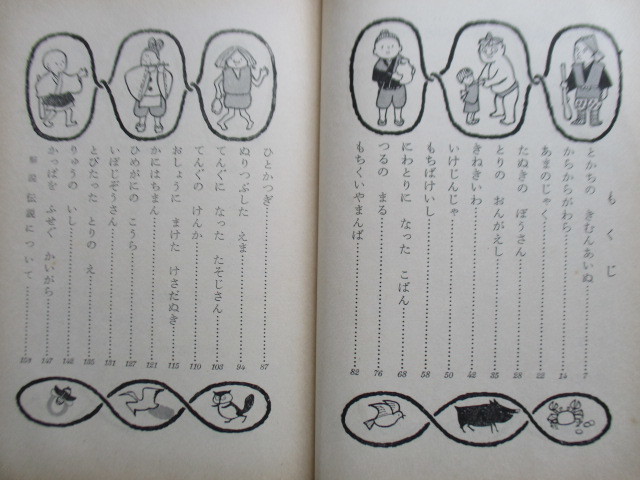 もくじ
とかちの きむんあいぬ……7
かちからがわら……14
あまのじゃく……22
たぬきの ぼうさん……28
とりの おんがえし……35
きねきいわ……42
いけじんじゃ……50
もちばけいし……58
にわとりに なった こばん……68
つるの まる……76
もちくいやまんば……82
ひとかつぎ……87
ぬりつぶした えま……94
てんぐに なった たそじさん……103
てんぐの けんか……110
おしょうに まけた けさだぬき……115
かにはちまん……121
ひめがにの こうち……127
いぼじぞうさん……131
とびたった とりの え……135
りゅうの いし……142
かっぱを ふせぐ かいがら……147
解説 伝説について……153